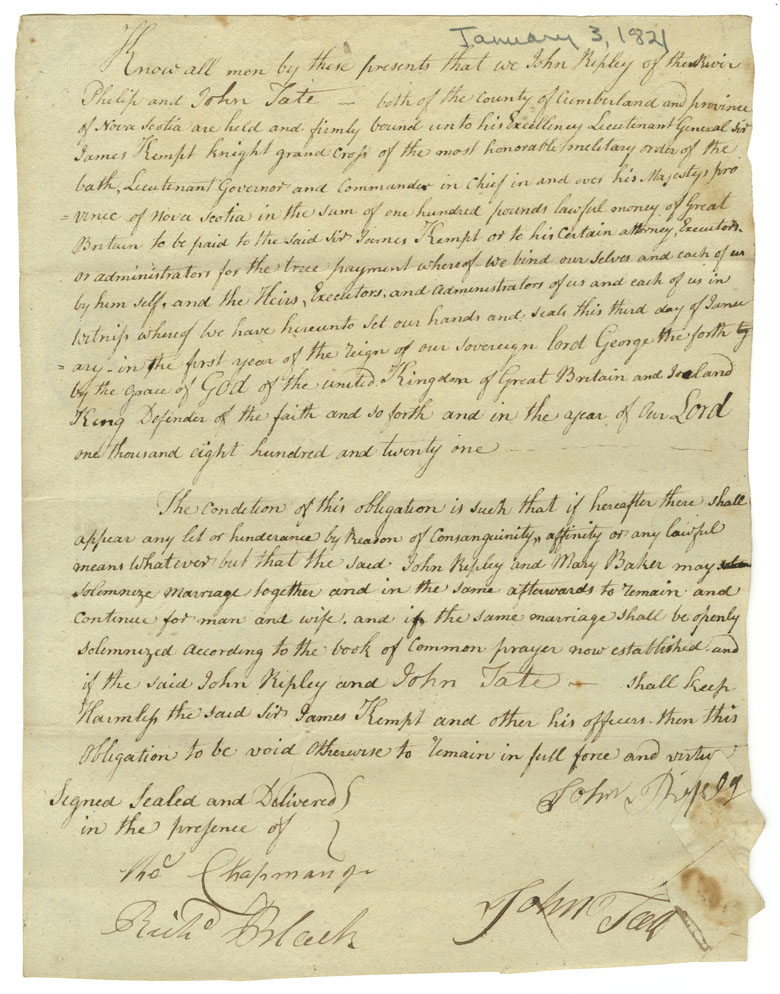 January 3, 1821
Know all men by these presents that we John Ripley of the River
Philip and John Tate — both of the County of Cumberland and province
of Nova Scotia are held and firmly bound unto his Excellency Lieutenant General Sir
James Kempt knight grand Cross of the most honorable melitary order of the
bath, Lieutenant Governor and Commander in Chief in and over his Majestys pro
= vince of Nova Scotia in the sum of one hundred pounds lawful money of Great
Britain to be paid to the said Sir James Kempt or to his Certain attorney, Executors
or administrators for the true payment whereof we bind our selves and each of us
by him self, and the Heirs, Executors, and administrators of us and each of us in
Witness whereof We have hereunto set our hands and seals this third day of Janu
= ary - in the first year of the reign of our sovereign lord George the forth
by the grace of GOD of the united Kingdom of Great Britain and Ireland
King Defender of the faith and so forth and in the year of Our Lord
one thousand eight hundred and twenty one
The Condition of this obligation is such that if hereafter there shall
appear any let or hinderance by Reason of Consanguinity, affinity or any lawful
means Whatever but that the said John Ripley and Mary Baker may
solemnize marriage together and in the same afterwards to remain and
Continue for man and wife. and if the same marriage shall be openly
solemnized according to the book of Common prayer now established. and
if the said John Ripley and John Tate — shall keep
Harmless the said Sir James Kempt and other his officers. then this
Obligation to be void otherwise to remain in full force and virtue
Signed Sealed and Delivered
in the presence of
John Ripley
Tho Chapman
Richd Black
John Tate